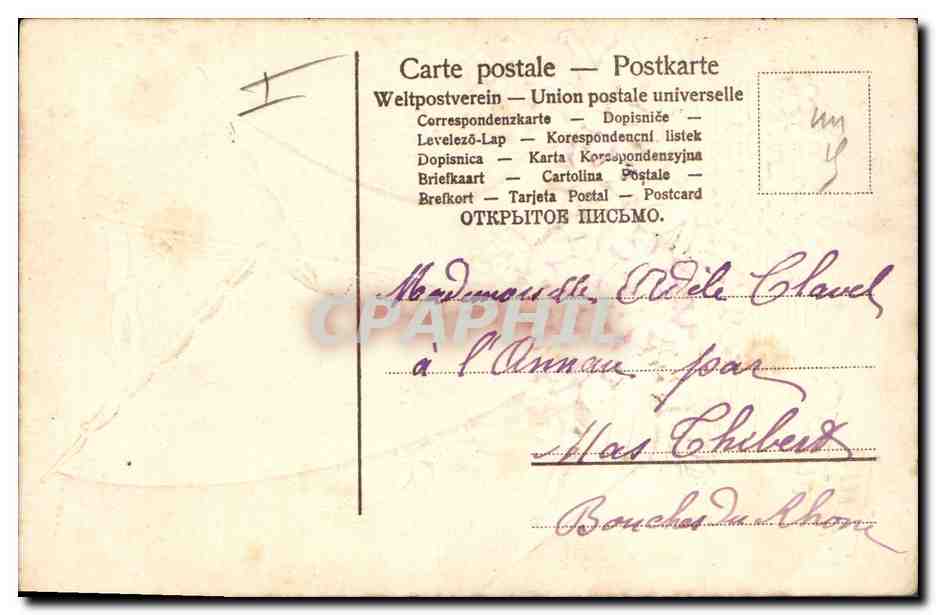 Carte postale — Postkarte
Weltpostverein — Union postale universelle
Correspondenzkarte — Dopisniče —
Levelező-Lap — Korespondencní listek
Dopisnica — Karta Korespondenzyjna
Briefkaart — Cartolina Postale —
Brefkort — Tarjeta Postal — Postcard
ОТКРЫТОЕ ПИСЬМО.
Mademoiselle Adèle Clavel
CPAPHIL
à l'Annau par
Mas Thibert
Bouches du Rhone